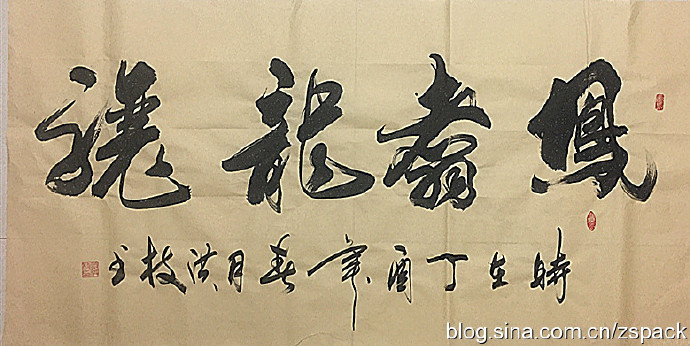 鳳翥龍驤
時在丁酉年春月洪枝书
blog.sina.com.cn/zspack